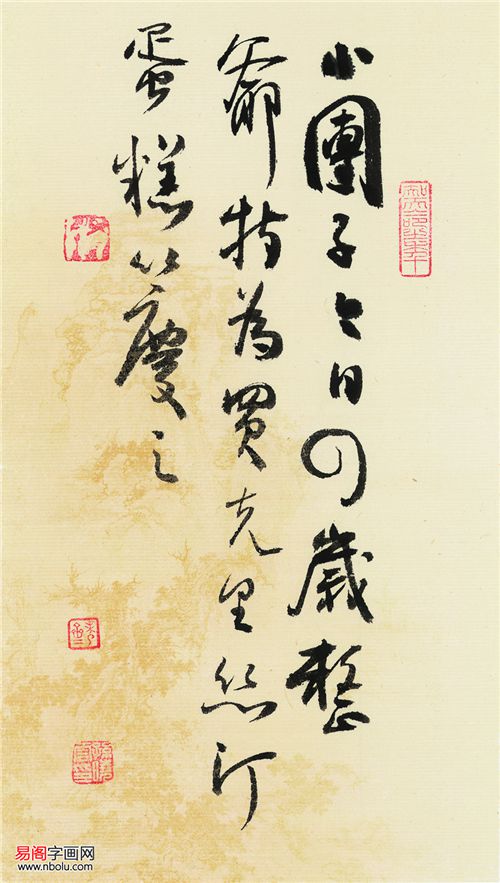 小團子今日四歲整
爺特為買克里絲汀
蛋糕以慶之
易阁字画网
www.nbolu.com